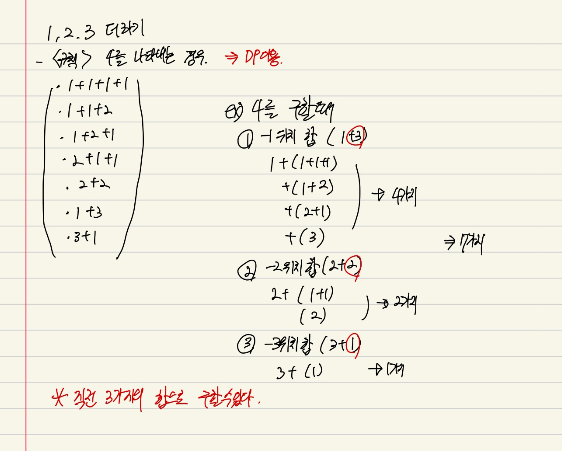 1, 2, 3 더하기
- <규칙> 4를 나타내는 경우. ⇒ DP이용.
· 1+1+1+1
· 1+1+2
· 1+2+1
· 2+1+1
· 2+2
· 1+3
· 3+1
ex) 4를 구할때
① -1위치 합 (1+3)
1+(1+1+1)
+(1+2)
+(2+1)
+(3)
→ 4가지
② -2위치합 (2+2)
2+(1+1)
(2)
→ 2가지
③ -3위치합 (3+1)
3+(1) → 1가지
⇒ 7가지
* 직전 3가지의 합으로 구할수있다.